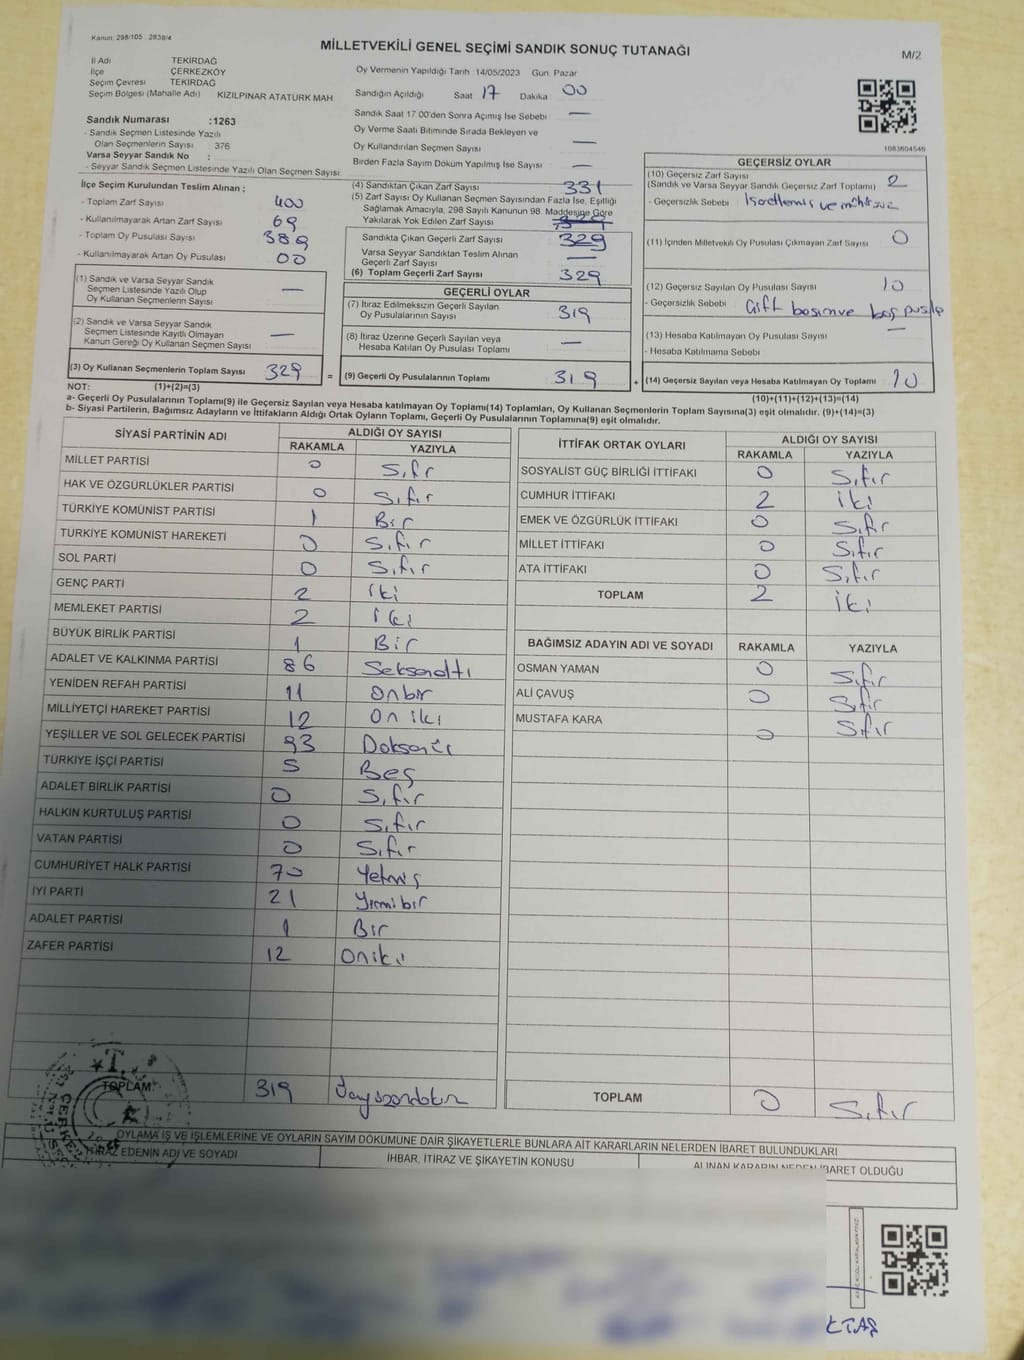 Kanun: 298/105 2839/4
MİLLETVEKİLİ GENEL SEÇİMİ SANDIK SONUÇ TUTANAĞI
M/2
İl Adı TEKİRDAĞ
İlçe ÇERKEZKÖY
Seçim Çevresi TEKİRDAĞ
Seçim Bölgesi (Mahalle Adı) KIZILPINAR ATATÜRK MAH
Sandık Numarası :1263
- Sandık Seçmen Listesinde Yazılı
Olan Seçmenlerin Sayısı : 376
Varsa Seyyar Sandık No :
- Seyyar Sandık Seçmen Listesinde Yazılı Olan Seçmen Sayısı :
Oy Vermenin Yapıldığı Tarih 14/05/2023 Gün: Pazar
Sandığın Açıldığı Saat 17 Dakika 00
Sandık Saat 17.00'den Sonra Açılmış İse Sebebi —
Oy Verme Saati Bitiminde Sırada Bekleyen ve
Oy Kullandırılan Seçmen Sayısı —
Birden Fazla Sayım Döküm Yapılmış İse Sayısı —
1083604546
İlçe Seçim Kurulundan Teslim Alınan ;
- Toplam Zarf Sayısı 400
- Kullanılmayarak Artan Zarf Sayısı 69
- Toplam Oy Pusulası Sayısı 389
- Kullanılmayarak Artan Oy Pusulası 00
(1) Sandık ve Varsa Seyyar Sandık
Seçmen Listesinde Yazılı Olup
Oy Kullanan Seçmenlerin Sayısı —
(2) Sandık ve Varsa Seyyar Sandık
Seçmen Listesinde Kayıtlı Olmayan
Kanun Gereği Oy Kullanan Seçmen Sayısı —
(3) Oy Kullanan Seçmenlerin Toplam Sayısı 329 =
(4) Sandıktan Çıkan Zarf Sayısı 331
(5) Zarf Sayısı Oy Kullanan Seçmen Sayısından Fazla İse, Eşitliği
Sağlamak Amacıyla, 298 Sayılı Kanunun 98. Maddesine Göre
Yakılarak Yok Edilen Zarf Sayısı
Sandıkta Çıkan Geçerli Zarf Sayısı 329
Varsa Seyyar Sandıktan Teslim Alınan
Geçerli Zarf Sayısı —
(6) Toplam Geçerli Zarf Sayısı 329
GEÇERLİ OYLAR
(7) İtiraz Edilmeksizin Geçerli Sayılan
Oy Pusulalarının Sayısı 319
(8) İtiraz Üzerine Geçerli Sayılan veya
Hesaba Katılan Oy Pusulası Toplamı —
(9) Geçerli Oy Pusulalarının Toplamı 319 +
GEÇERSİZ OYLAR
(10) Geçersiz Zarf Sayısı
(Sandık ve Varsa Seyyar Sandık Geçersiz Zarf Toplamı) 2
- Geçersizlik Sebebi İşaretlemiş ve mühürsüz
(11) İçinden Milletvekili Oy Pusulası Çıkmayan Zarf Sayısı 0
(12) Geçersiz Sayılan Oy Pusulası Sayısı 10
- Geçersizlik Sebebi Çift basım ve boş pusula
(13) Hesaba Katılmayan Oy Pusulası Sayısı —
- Hesaba Katılmama Sebebi
(14) Geçersiz Sayılan veya Hesaba Katılmayan Oy Toplamı 10
NOT: (1)+(2)=(3)
(10)+(11)+(12)+(13)=(14)
a- Geçerli Oy Pusulalarının Toplamı(9) ile Geçersiz Sayılan veya Hesaba katılmayan Oy Toplamı(14) Toplamları, Oy Kullanan Seçmenlerin Toplam Sayısına(3) eşit olmalıdır. (9)+(14)=(3)
b- Siyasi Partilerin, Bağımsız Adayların ve İttifakların Aldığı Ortak Oyların Toplamı, Geçerli Oy Pusulalarının Toplamına(9) eşit olmalıdır.
SİYASİ PARTİNİN ADI ALDIĞI OY SAYISI
RAKAMLA YAZIYLA
MİLLET PARTİSİ 0 Sıfır
HAK VE ÖZGÜRLÜKLER PARTİSİ 0 Sıfır
TÜRKİYE KOMÜNİST PARTİSİ 1 Bir
TÜRKİYE KOMÜNİST HAREKETİ 0 Sıfır
SOL PARTİ 0 Sıfır
GENÇ PARTİ 2 iki
MEMLEKET PARTİSİ 2 iki
BÜYÜK BİRLİK PARTİSİ 1 Bir
ADALET VE KALKINMA PARTİSİ 86 Seksenaltı
YENİDEN REFAH PARTİSİ 11 Onbir
MİLLİYETÇİ HAREKET PARTİSİ 12 On iki
YEŞİLLER VE SOL GELECEK PARTİSİ 93 Doksanüç
TÜRKİYE İŞÇİ PARTİSİ 5 Beş
ADALET BİRLİK PARTİSİ 0 Sıfır
HALKIN KURTULUŞ PARTİSİ 0 Sıfır
VATAN PARTİSİ 0 Sıfır
CUMHURİYET HALK PARTİSİ 70 Yetmiş
İYİ PARTİ 21 Yirmibir
ADALET PARTİSİ 1 Bir
ZAFER PARTİSİ 12 Oniki
TOPLAM 319
İTTİFAK ORTAK OYLARI ALDIĞI OY SAYISI
RAKAMLA YAZIYLA
SOSYALİST GÜÇ BİRLİĞİ İTTİFAKI 0 Sıfır
CUMHUR İTTİFAKI 2 iki
EMEK VE ÖZGÜRLÜK İTTİFAKI 0 Sıfır
MİLLET İTTİFAKI 0 Sıfır
ATA İTTİFAKI 0 Sıfır
TOPLAM 2 iki
BAĞIMSIZ ADAYIN ADI VE SOYADI RAKAMLA YAZIYLA
OSMAN YAMAN 0 Sıfır
ALİ ÇAVUŞ 0 Sıfır
MUSTAFA KARA 0 Sıfır
TOPLAM 0 Sıfır
OYLAMA İŞ VE İŞLEMLERİNE VE OYLARIN SAYIM DÖKÜMÜNE DAİR ŞİKAYETLERLE BUNLARA AİT KARARLARIN NELERDEN İBARET BULUNDUKLARI
İTİRAZ EDENİN ADI VE SOYADI İHBAR, İTİRAZ VE ŞİKAYETİN KONUSU ALINAN KARARIN NEDEN İBARET OLDUĞU